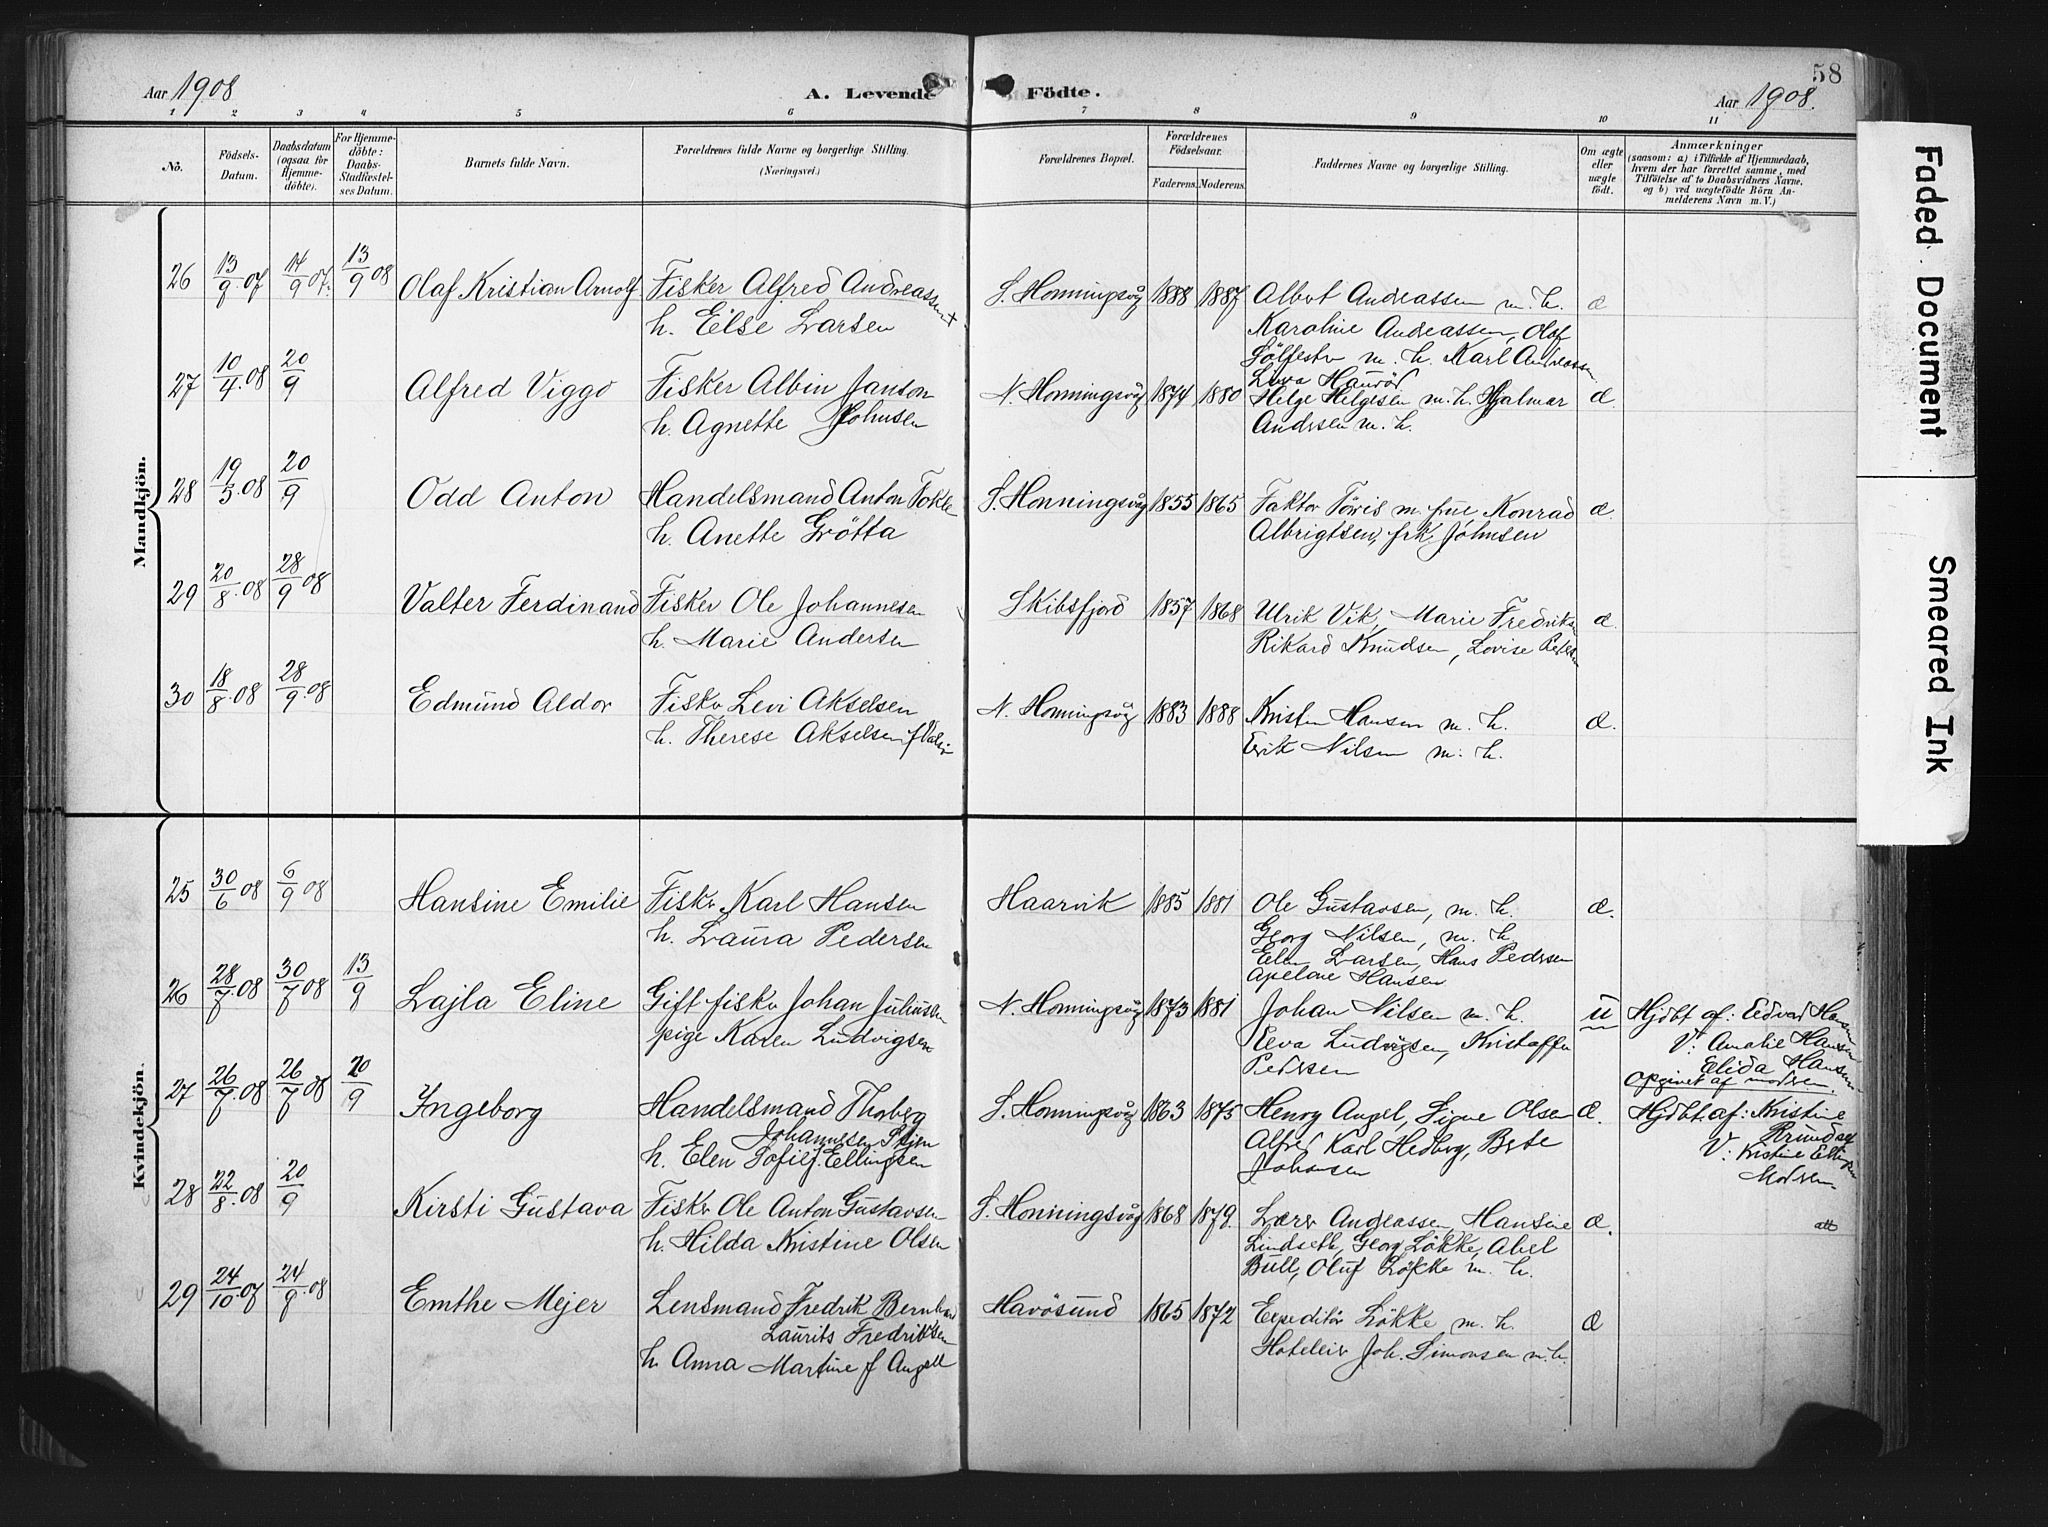 58
Aar 1908
A. Levende Födte.
Aar 1908.
1 2 3 4 5 6 7 8 9 10 11
No.
Födsels-Datum.
Daabsdatum (ogsaa for Hjemme-döbte).
For Hjemme-döbte: Daabs-Stadfæstel-ses Datum.
Barnets fulde Navn.
Forældrenes fulde Navne og borgerlige Stilling. (Næringsvei.)
Forældrenes Bopæl.
Forældrenes Födselsaar.
Faderens. Moderens.
Faddernes Navne og borgerlige Stilling.
Om ægte eller uægte födt.
Anmærkninger
(saasom: a) i Tilfælde af Hjemmedaab, hvem der har forrettet samme, med Tilföielse af to Daabsvidners Navne, og b) ved uægtefödte Börn An-melderens Navn m. V.)
Mandkjön.
26 13/9 07 14/9 07. 13/9 08 Olaf Kristian Arnolf Fisker Alfred Andreassen S. Honningsvåg 1888 1887 Albert Andreassen m. h. æ
h. Else Larsen Karoline Andreassen, Olaf
m. h. Karl Andreassen
27 10/4 08 20/9 Alfred Viggo Fisker Albin Janson N. Honningsvåg 1874 1880 Helge Helgesen m. h. Hjalmar æ.
h. Agnette Johnsen Andersen m. h.
28 19/5 08 20/9 Odd Anton Handelsmand Anton Fokle S. Honningsvåg 1855 1865 Faktor m. frue Konrad æ.
h. Anette Grötta Albrigtsen, frk Johnsen
29 20/8 08 28/9 08 Valter Ferdinand Fisker Ole Johannesen Skibsfjord 1857 1868 Ulrik Vik, Marie Fredriksen æ.
h. Marie Andersen Rikard Knudsen, Lovise Petersen
30 18/8 08 28/9 08 Edmund Aldor Fisker Levi Akselsen N. Honningsvåg 1883 1888 Kristen Hansen m. h. æ.
h. Therese Akselsen Erik Nilsen m. h.
Kvindekjön.
25 30/6 08 6/9 08 Hansine Emilie Fisker Karl Hansen Haarvik 1885 1881 Ole Gustavsen, m. h. æ.
h. Laura Pedersen Georg Nilsen, m. h.
Elen Larsen, Hans Pedersen
Apelone Hansen
26 28/7 08 30/7 08 13/9 Lajla Eline Gift fisker Johan Juliussen N. Honningsvåg 1873 1881 Johan Nilsen m. h. u Hjdbt af: Edvard Hansen
pige Karen Ludvigsen Eeva Ludvigsen, Kristoffer V: Amalie Hansen
Pedersen Elida Hansen
Opgivet af modren.
27 26/7 08 26/7 08 20/9 Ingeborg Handelsmand Thoberg S. Honningsvåg 1863 1875 Henry Angel, Signe Olsen æ. Hjdbt. af: Kristine
Johannesen Stjen Alfred Karl Hedberg, Berte
h. Elen Sofie f. Ellingsen Johansen V: Kristine Ellingsen
Modren
28 22/8 08 20/9 Kirsti Gustava Fisker Ole Anton Gustavsen S. Honningsvåg 1868 1879. Lærer Andreassen, Hansine æ. att
h. Hilda Kristine Olsen Lindseth, Georg Lökke, Abel
Bull, Oluf Lökke m. h.
29 24/10 07 24/9 08 Emthe Mejer Lensmand Fredrik Bernhard Havösund 1865 1872 Expeditör Lökke m. h. æ
Laurits Fredriksen Hoteleier Joh. Simonsen m. h.
h. Anna Martine f Angell
Faded Document
Smeared Ink